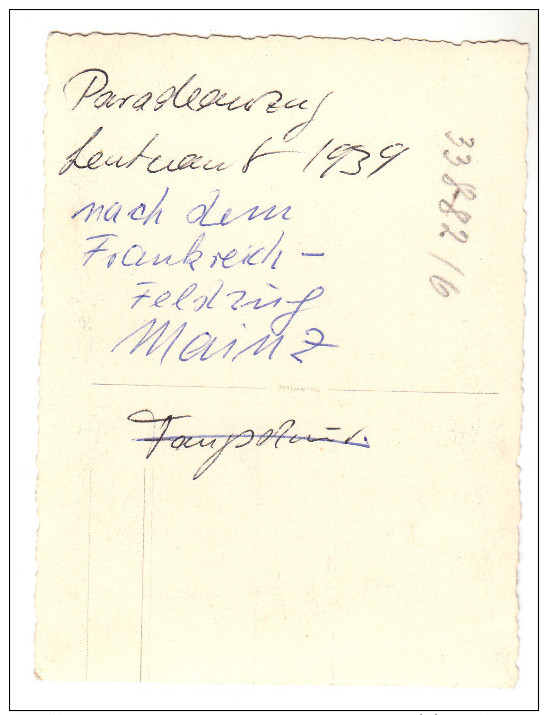 Paradeanzug
Leutnant 1939
nach dem
Frankreich-
Feldzug
Mainz
338-82/6